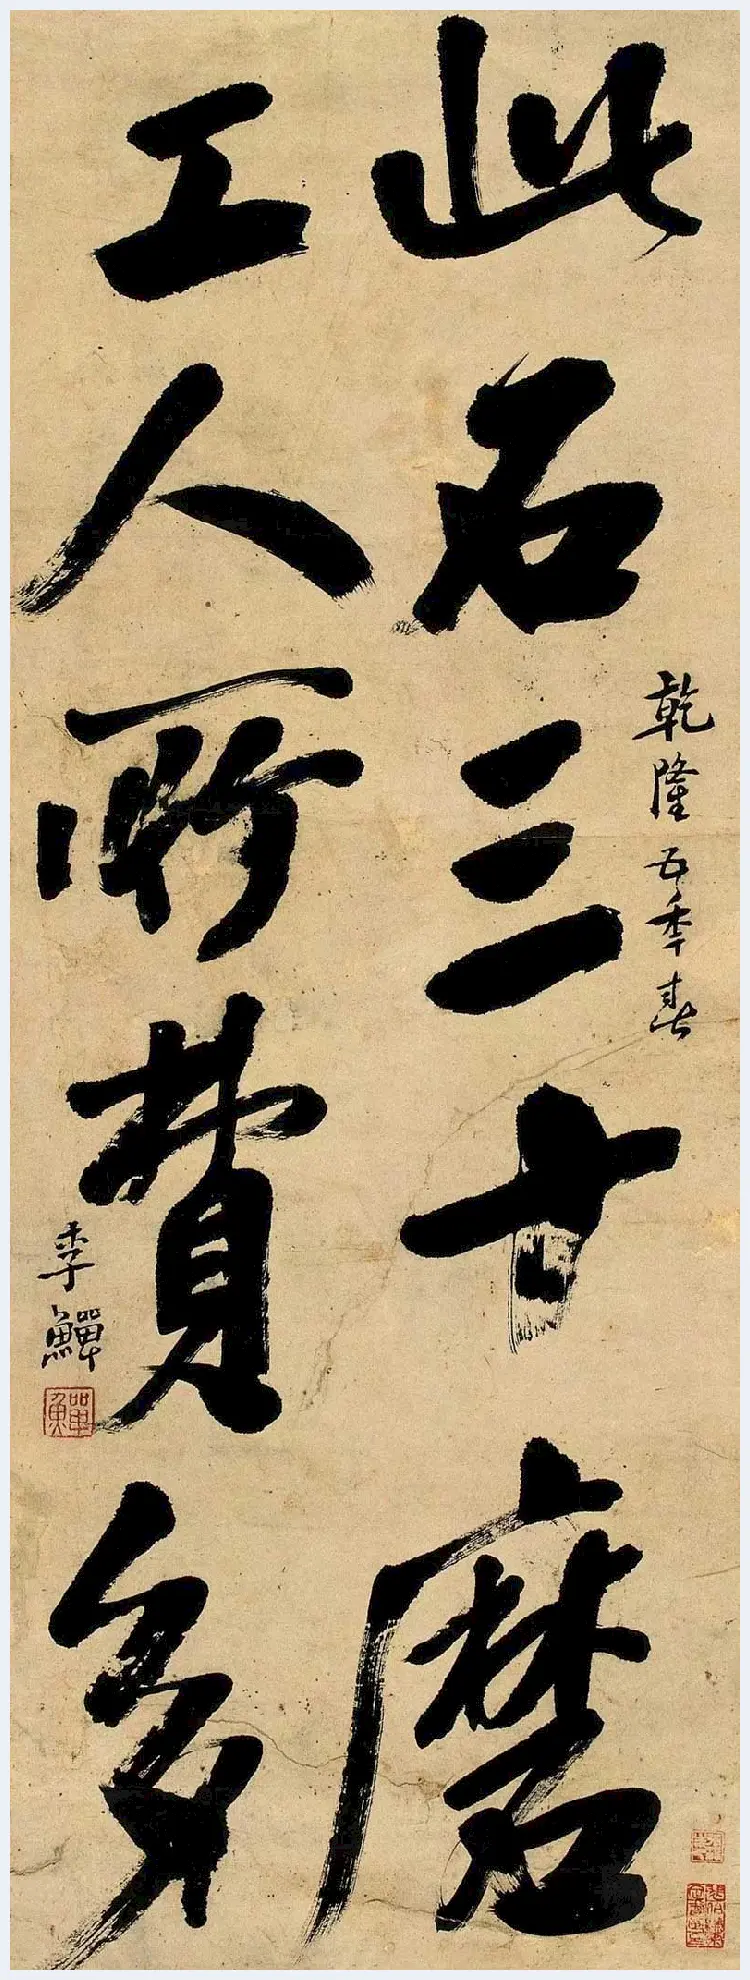 乾隆五年春
此石三十磨
工人所費多
李鱓
鱓